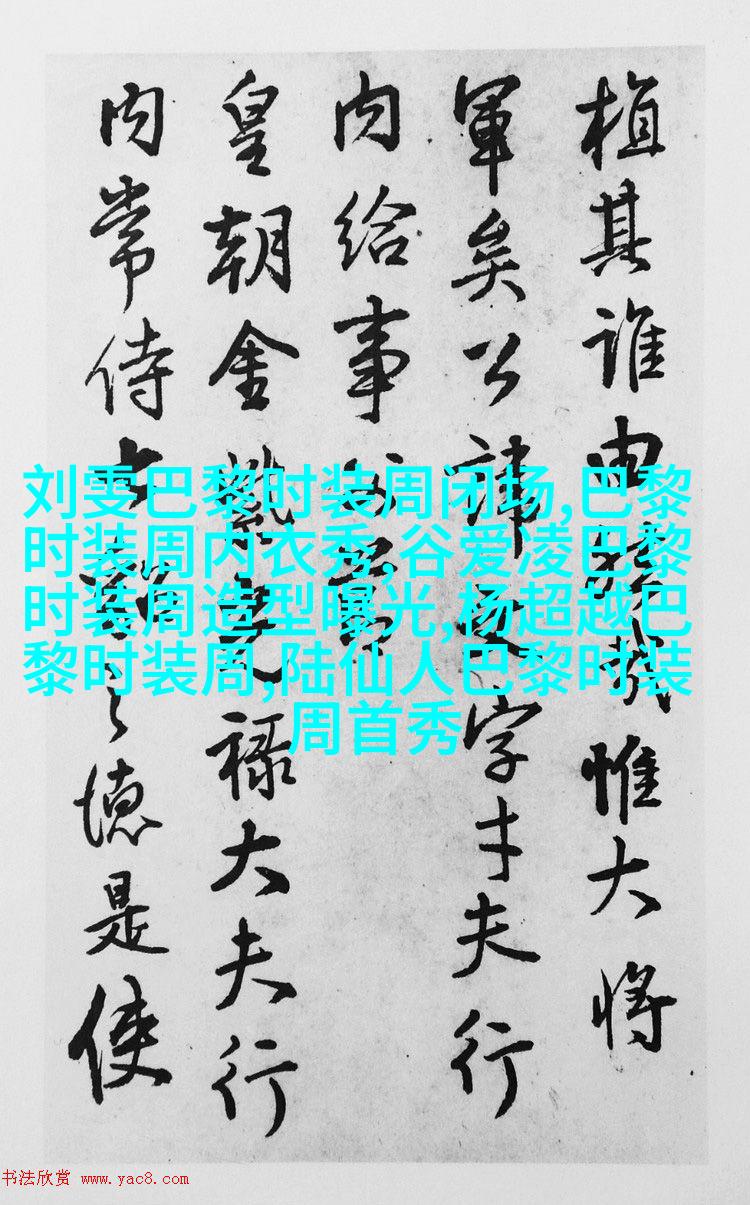 植其誰由哉惟大將
軍矣公諱文字才夫行
内給事父
皇朝金光祿大夫行
内常侍上之德是使
刘雯巴黎时装周闭场,巴黎
时装周内衣秀.谷爱凌巴黎
时装周造型曝光,杨超越巴
黎时装周,陆仙人巴黎时装
周首秀
书法欣赏 www.yac8.com